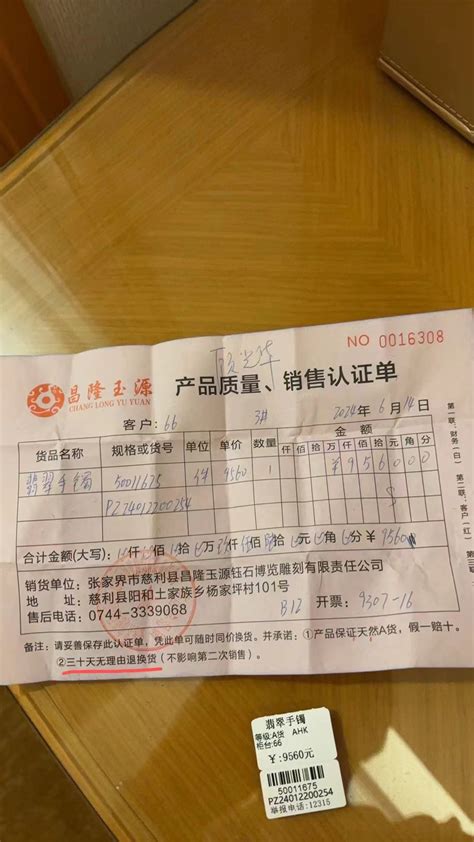 NO 0016308
昌隆玉源
CHANG LONG YU YUAN
产品质量、销售认证单
客户：66 3# 2024年6月14日
货品名称 规格或货号 单位 单价 数量 金额
仟 佰 拾 万 仟 佰 拾 元 角 分
翡翠手镯 50011675 件 9560 1 ¥956000
PZ24012200254
合计金额(大写)： 仟 佰 拾 万 仟 佰 拾 元 角 分 ¥ 9560
销货单位：张家界市慈利县昌隆玉源钰石博览雕刻有限责任公司
地 址：慈利县阳和土家族乡杨家坪村101号
售后电话：0744-3339068 B12 开票：9307-16
备注：请妥善保存此认证单，凭此单可随时同价换货。并承诺：①产品保证天然A货，假一赔十。
②三十天无理由退换货（不影响第二次销售）。
第一联：财务(白) 第二联：客户(红) 第三
翡翠手镯
等级:A货 AHK
柜台:66
¥:9560元
50011675
PZ24012200254
举报电话:12315